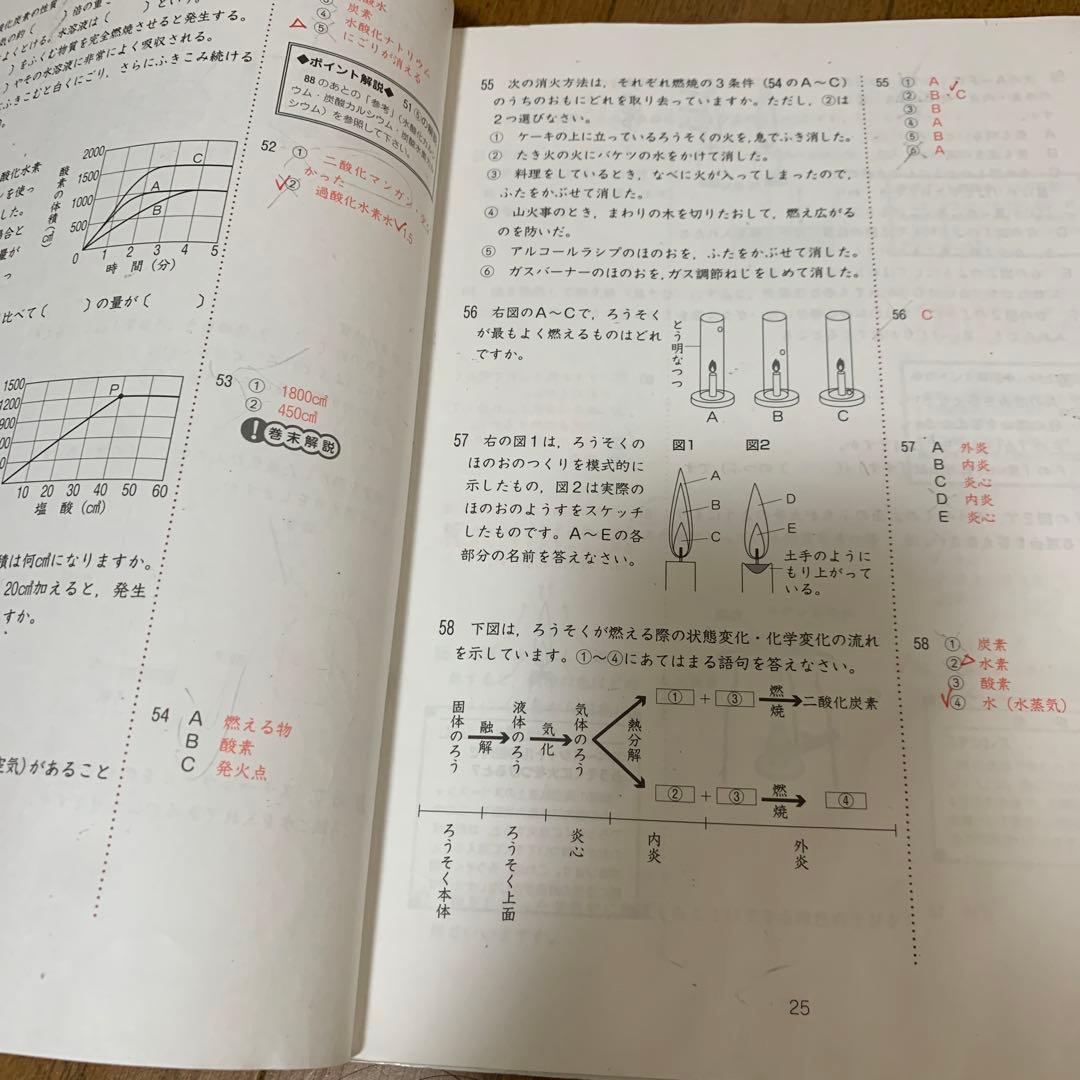 酸化炭素の性質
倍の重
という。
気の約(
)。水溶液は(
)
よくとける。
をふくむ物質を完全燃焼させると発生する。
)やその水溶液に非常によく吸収される。
ふきこむと白くにごり，さらにふきこみ続ける
酸化水素
ンを使っ
した。
場合と
量が
っ
酸素の体積(㎤)
2000
1500
1000
500
0
1 2 3 4 5
時 間 (分)
A
B
C
比べて(　　)の量が(　　)
1500
1200
900
P
10 20 30 40 50 60
塩 酸 (㎤)
積は何㎤になりますか。
20㎤加えると，発生
すか。
空気)があること
④ 炭素
⑤ 水酸化ナトリウム
にごりが消える
◆ポイント解説◆
51
88のあとの「参考」(水酸化カル
ウム・炭酸カルシウム・炭酸水素カル
シウム)を参照して下さい。
52 ①
二酸化マンガン
かった
② 過酸化水素水
1.5
53 ① 1800㎤
② 450㎤
!巻末解説
54 A 燃える物
B 酸素
C 発火点
55 次の消火方法は，それぞれ燃焼の3条件(54のA～C)
のうちのおもにどれを取り去っていますか。ただし，②は
2つ選びなさい。
① ケーキの上に立っているろうそくの火を，息でふき消した。
② たき火の火にバケツの水をかけて消した。
③ 料理をしているとき，なべに火が入ってしまったので，
ふたをかぶせて消した。
④ 山火事のとき，まわりの木を切りたおして，燃え広がる
のを防いだ。
⑤ アルコールランプのほのおを，ふたをかぶせて消した。
⑥ ガスバーナーのほのおを，ガス調節ねじをしめて消した。
55 ① A
② B・C
③ B
④ A
⑤ B
⑥ A
56 右図のA～Cで，ろうそく
が最もよく燃えるものはどれ
ですか。
とう明なつつ
A B C
56 C
57 右の図1は，ろうそくの
ほのおのつくりを模式的に
示したもの，図2は実際の
ほのおのようすをスケッチ
したものです。A～Eの各
部分の名前を答えなさい。
図1 図2
A
B
C
D
E
土手のように
もり上がって
いる。
57 A 外炎
B 内炎
C 炎心
D 内炎
E 炎心
58 下図は，ろうそくが燃える際の状態変化・化学変化の流れ
を示しています。①～④にあてはまる語句を答えなさい。
固体のろう
融解
液体のろう
気化
気体のろう
熱分解
① + ③ 燃焼 二酸化炭素
② + ③ 燃焼 ④
ろうそく本体
ろうそく上面
炎心
内炎
外炎
58 ① 炭素
② 水素
③ 酸素
④ 水(水蒸気)
25